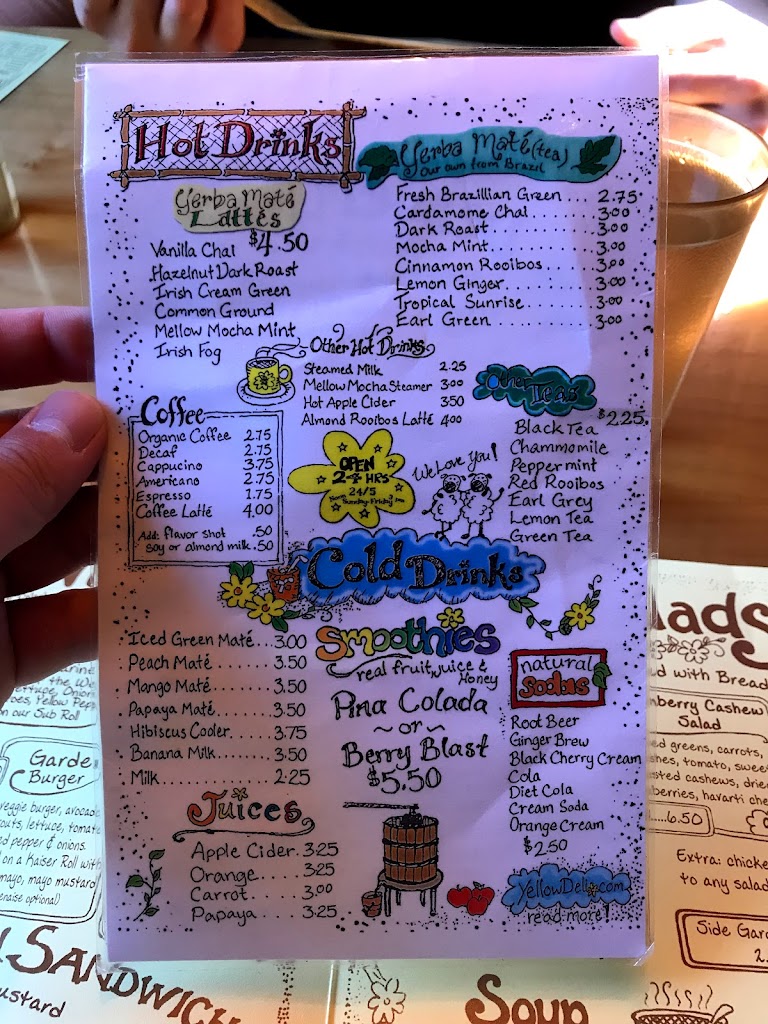 Hot Drinks
Yerba Maté
Lattés
$4.50
Vanilla Chai
Hazelnut Dark Roast
Irish Cream Green
Common Ground
Mellow Mocha Mint
Irish Fog
Yerba Maté (tea)
Our own from Brazil
Fresh Brazillian Green ... 2.75
Cardamome Chai ... 3.00
Dark Roast ... 3.00
Mocha Mint ... 3.00
Cinnamon Rooibos ... 3.00
Lemon Ginger ... 3.00
Tropical Sunrise ... 3.00
Earl Green ... 3.00
Other Hot Drinks
Steamed Milk 2.25
Mellow Mocha Steamer 3.00
Hot Apple Cider 3.50
Almond Rooibos Latté 4.00
Coffee
Organic Coffee 2.75
Decaf 2.75
Cappucino 3.75
Americano 2.75
Espresso 1.75
Coffee Latté 4.00
Add: flavor shot .50
soy or almond milk .50
OPEN
24 HRS
24/5
We Love You!
Other Teas
$2.25
Black Tea
Chammomile
Peppermint
Red Rooibos
Earl Grey
Lemon Tea
Green Tea
Cold Drinks
Iced Green Maté ... 3.00
Peach Maté ... 3.50
Mango Maté ... 3.50
Papaya Maté ... 3.50
Hibiscus Cooler ... 3.75
Banana Milk ... 3.50
Milk ... 2.25
Smoothies
real fruit, juice &
Honey
Pina Colada
~ or ~
Berry Blast
$5.50
natural
Sodas
Root Beer
Ginger Brew
Black Cherry Cream
Cola
Diet Cola
Cream Soda
Orange Cream
$2.50
Juices
Apple Cider . 3.25
Orange .... 3.25
Carrot .... 3.00
Papaya .... 3.25
YellowDeli.com
read more!
on our Sub Roll
Garde
Burger
veggie burger, avocado
outs, lettuce, tomato
ed pepper & onions.
on a Kaiser Roll with
mayo, mayo mustard
SANDWICH
ustard
lads
d with Bread
nberry Cashew
Salad
ed greens, carrots,
shes, tomato, sweet
sted cashews, drie
berries, havarti che
6.50
Extra: chicke
to any salad
Side Gard
2.
Soup